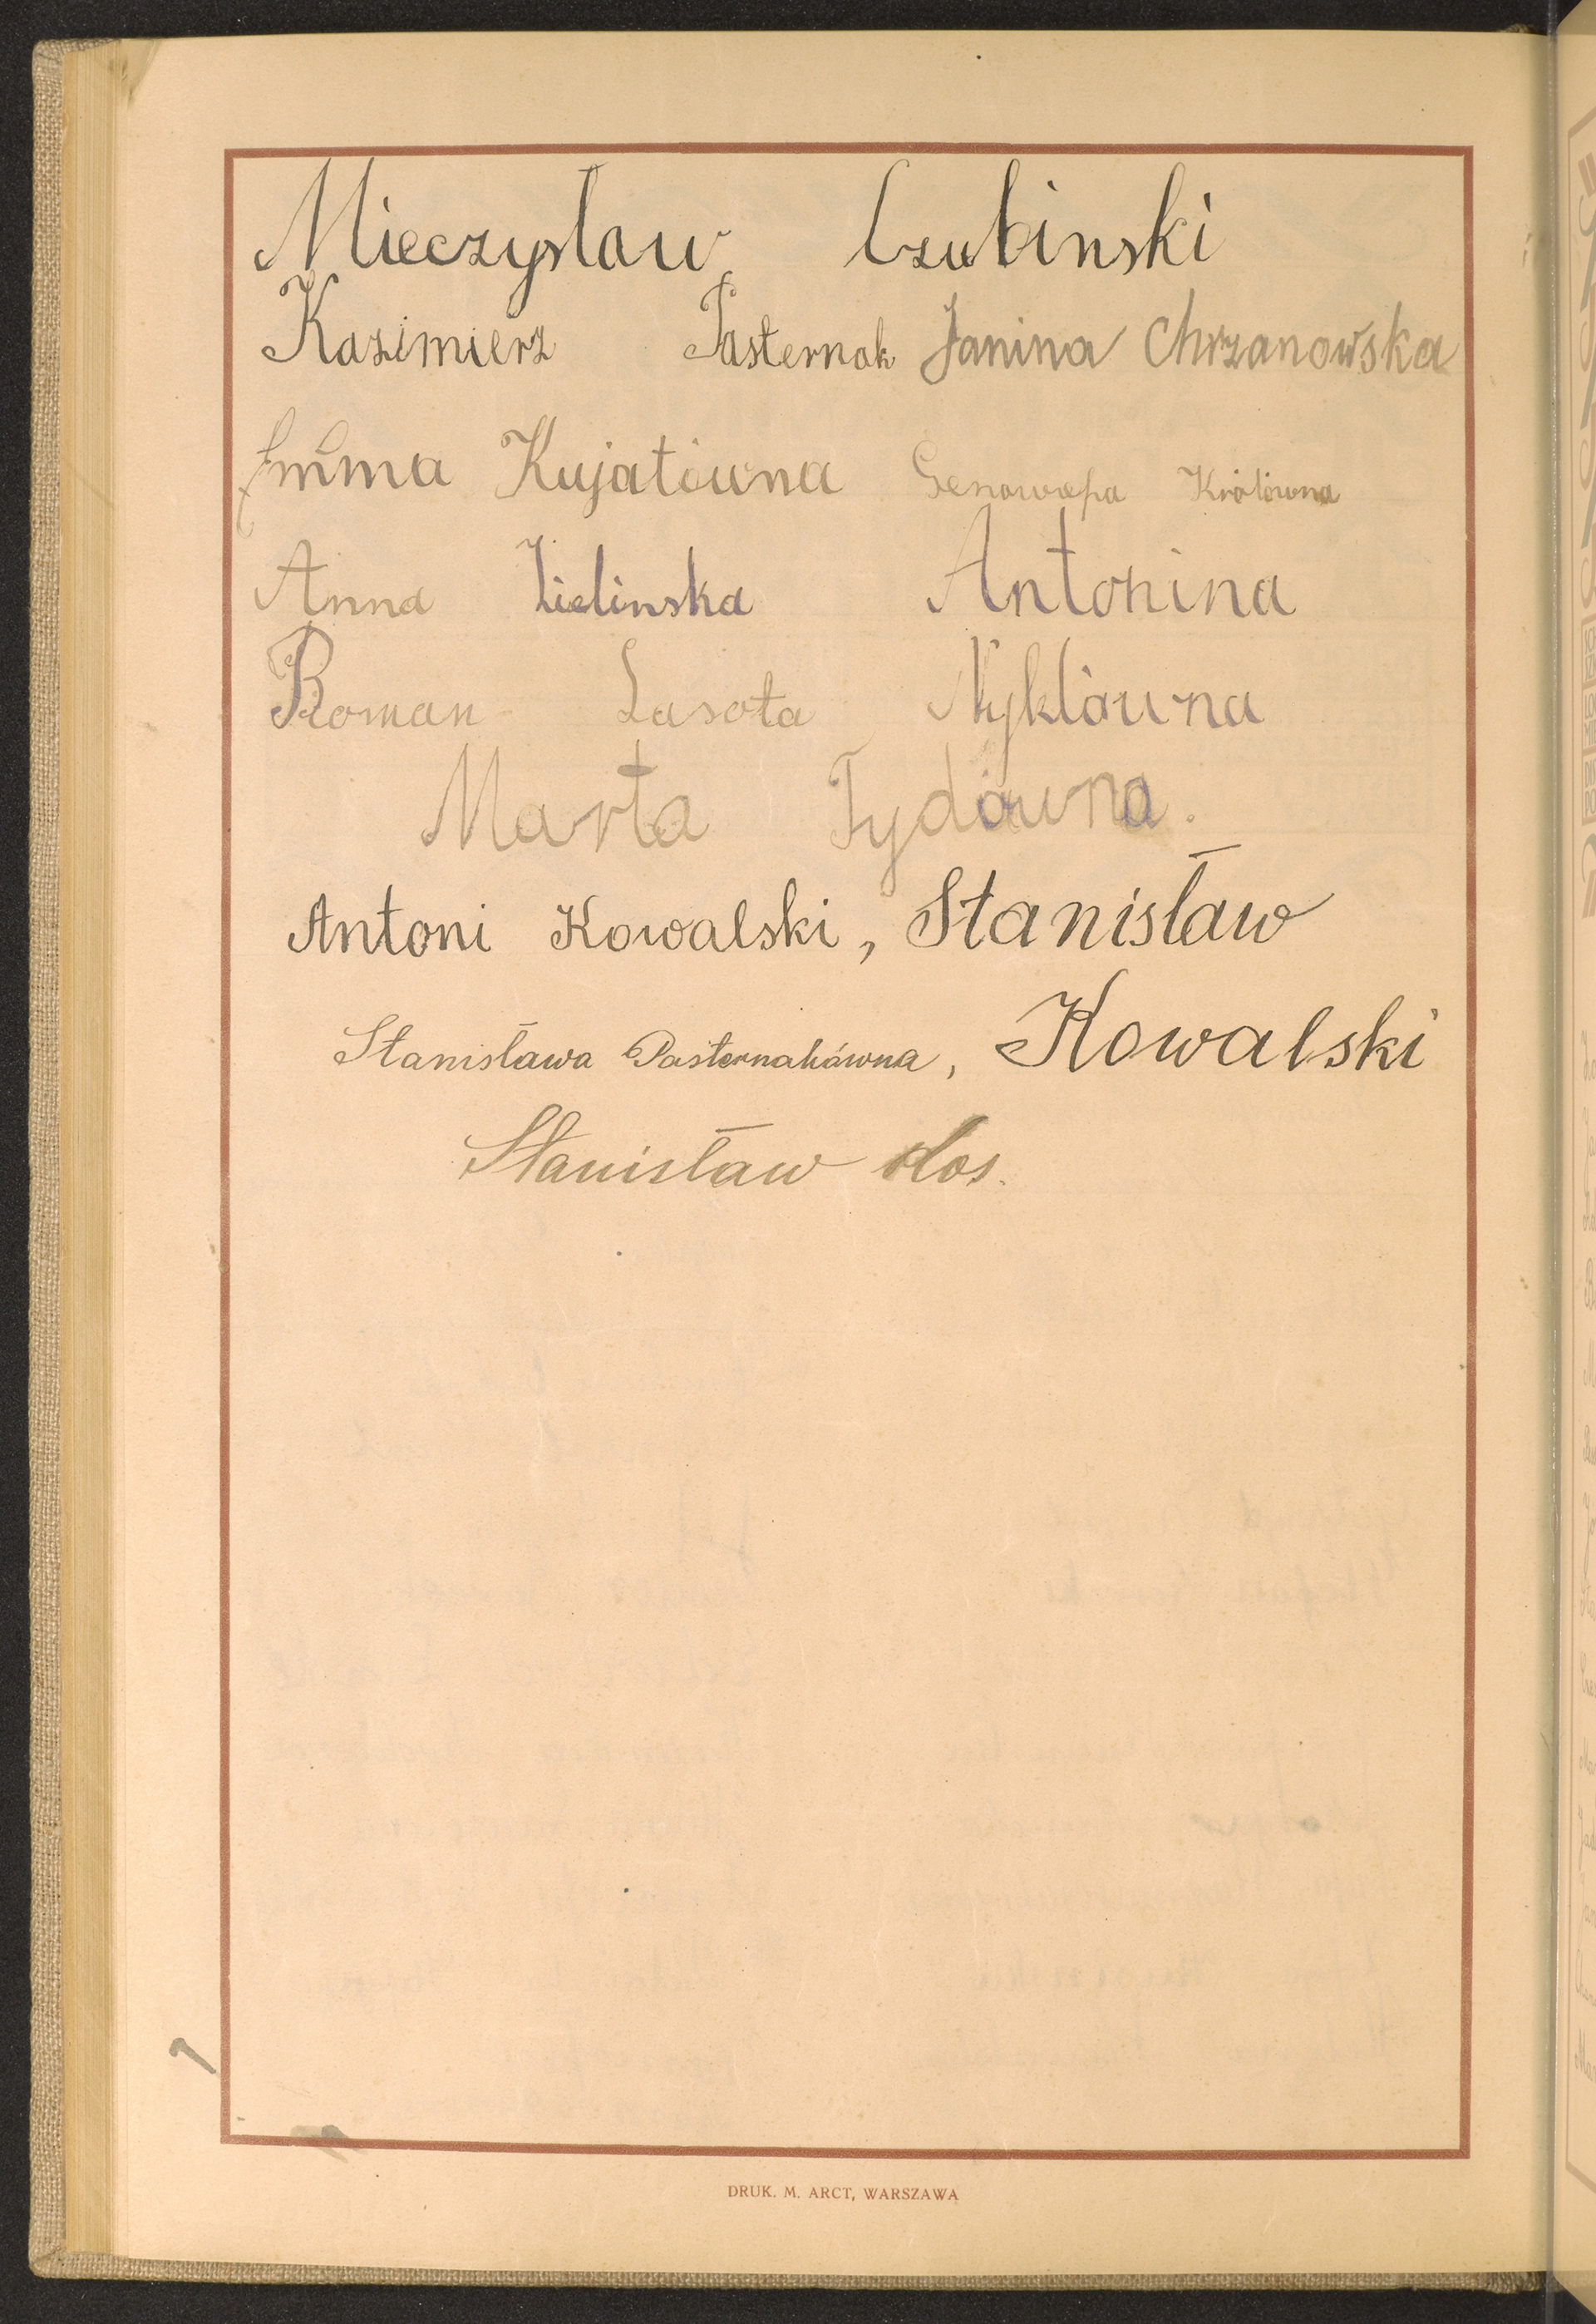 Mieczysław Czubinski
Kazimierz Pasternak Janina Chrzanowska
Emma Kujatówna Genowefa Królówna
Anna Zielinska Antonina
Roman Lasota Nyklówna
Marta Tydówna.
Antoni Kowalski, Stanisław
Stanisława Pasternakówna, Kowalski
Stanisław Kos.
DRUK. M. ARCT, WARSZAWA